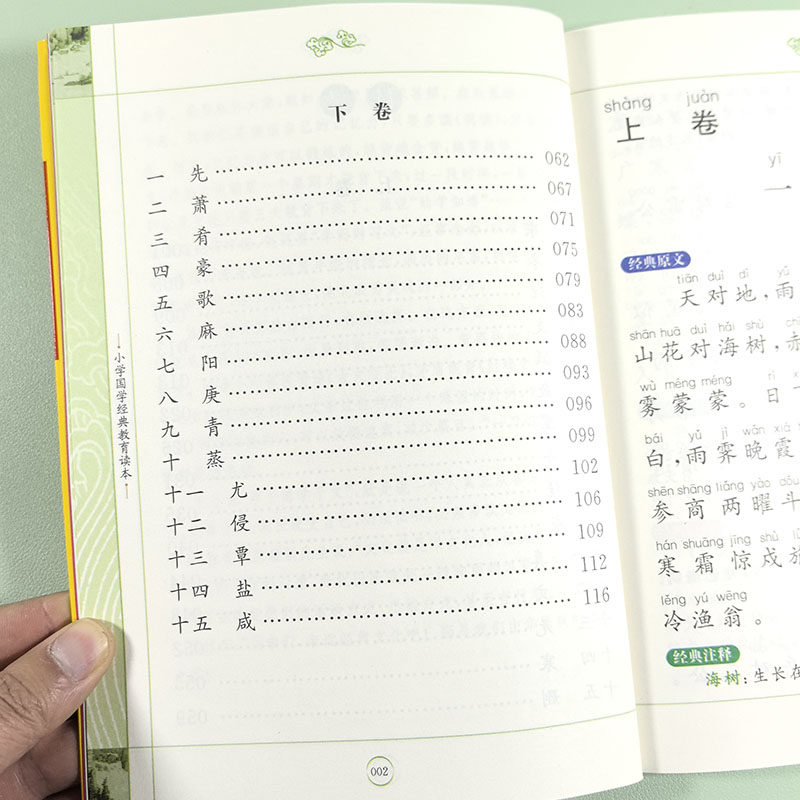 下卷
一 先 …… 062
二 萧 …… 067
三 肴 …… 071
四 豪 …… 075
五 歌 …… 079
六 麻 …… 083
七 阳 …… 088
八 庚 …… 093
九 青 …… 096
十 蒸 …… 099
十一 尤 …… 102
十二 侵 …… 106
十三 覃 …… 109
十四 盐 …… 112
十五 咸 …… 116
小学国学经典教育读本
002
shàng juàn
上卷
yī
一
经典原文
tiān duì dì yǔ
天对地，雨
shān huā duì hǎi shù chì
山花对海树，赤
wù méng méng rì
雾蒙蒙。日
bái yǔ jì wǎn xiá
白，雨霁晚霞
shēn shāng liǎng yào dǒu
参商两曜斗
hán shuāng jīng shù
寒霜惊戍旅
lěng yú wēng
冷渔翁。
经典注释
海树：生长在